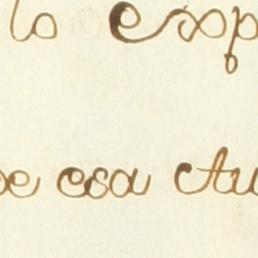 lo exp
de esa Au